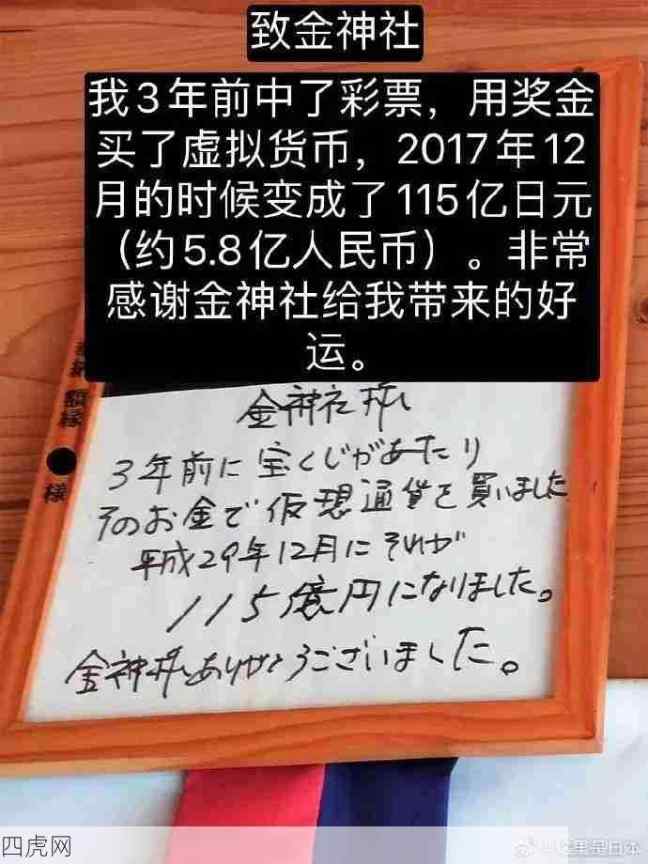 致金神社
我3年前中了彩票，用奖金
买了虚拟货币，2017年12
月的时候变成了115亿日元
（约5.8亿人民币）。非常
感谢金神社给我带来的好
运。
額縁
様
金神社様
3年前に宝くじがあたり
そのお金で仮想通貨を買いました
平成29年12月にそれが
115億円になりました。
金神様ありがとうございました。
四虎网
这里是日本